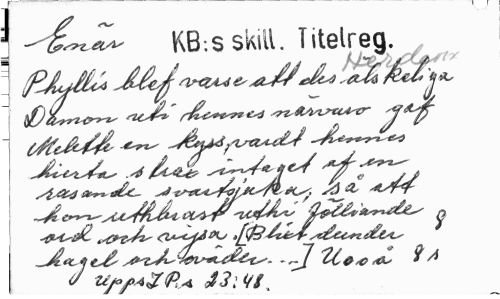 Enär KB:s skill. Titelreg.
Phyllis blef varse att des älskeliga
Damon uti hennes närvaro gaf
Melette en kyss, vardt hennes
hierta strax intaget af en
rasande svartsjuka, så att
hon uthbrast uthi följiande
ord och vijsa. [Blixt dunder
hagel och oväder...] U o o å 8 s
Upps I P.s 23:48.